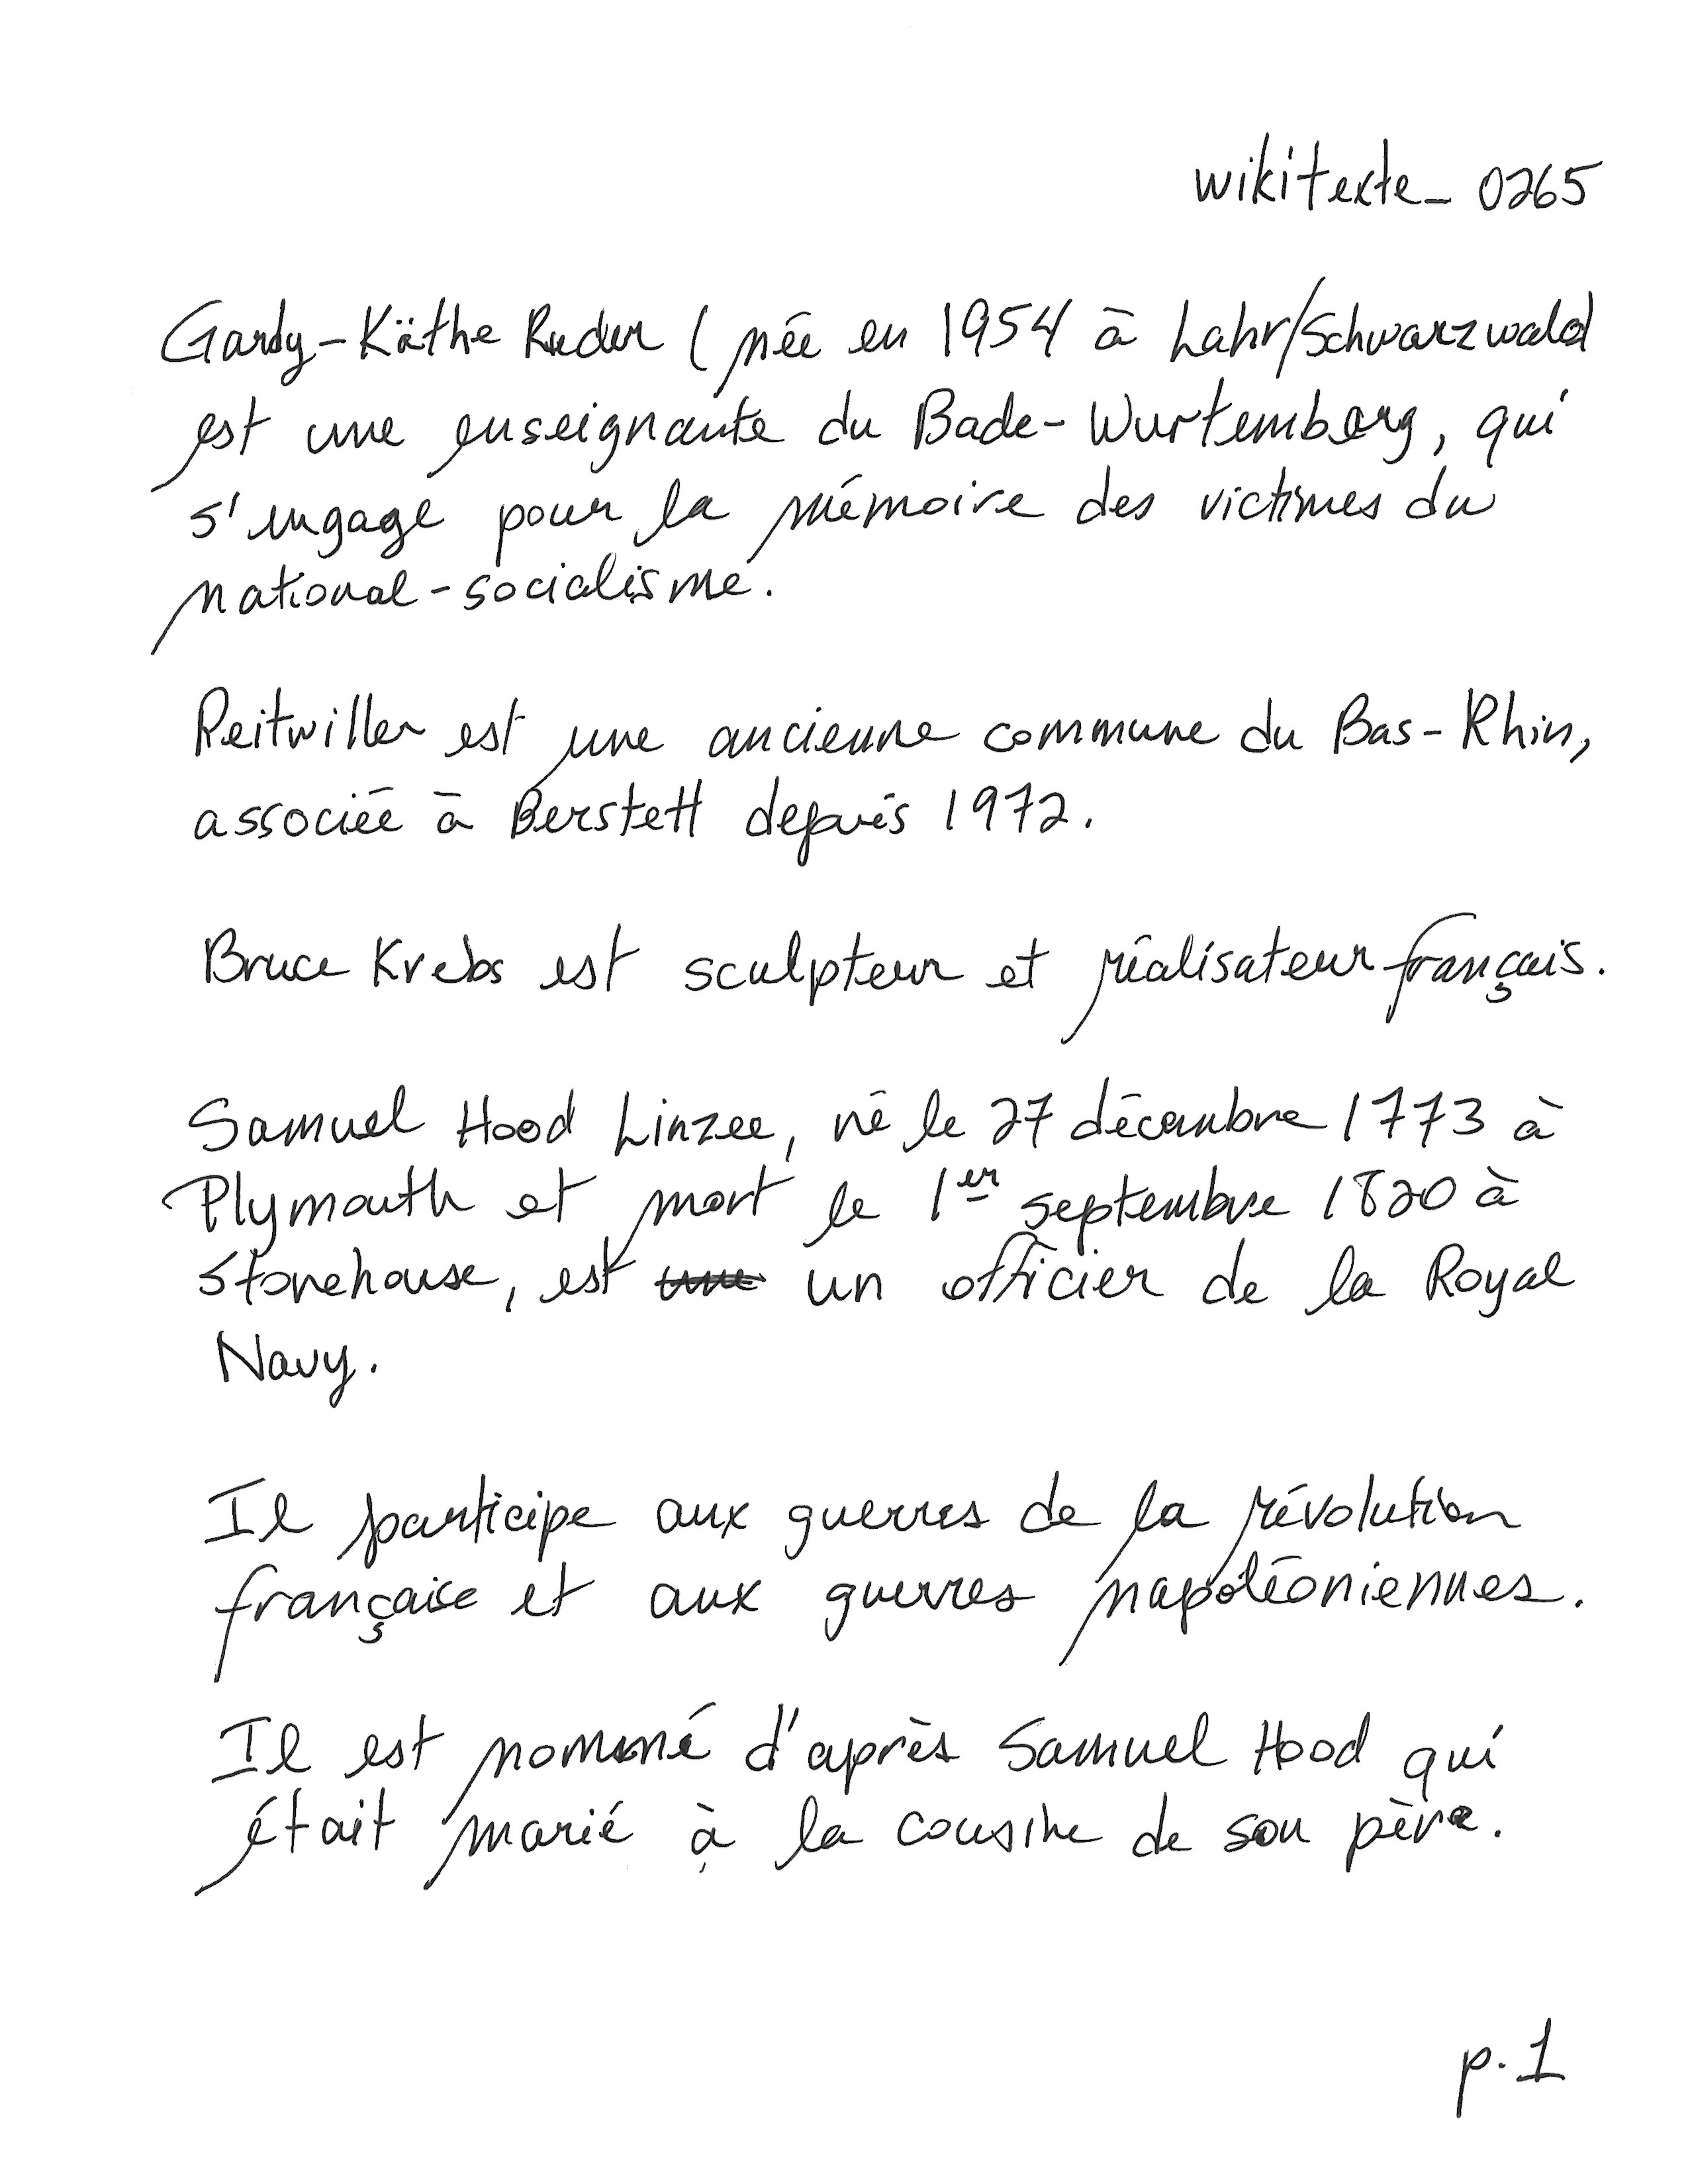 wikitexte_0265
Gardy-Käthe Ruder (née en 1954 à Lahr/Schwarzwald
est une enseignante du Bade-Wurtemberg, qui
s'engage pour la mémoire des victimes du
national-socialisme.
Reitwiller est une ancienne commune du Bas-Rhin,
associée à Berstett depuis 1972.
Bruce Krebs est sculpteur et réalisateur français.
Samuel Hood Linzee, né le 27 décembre 1773 à
Plymouth et mort le 1er septembre 1820 à
Stonehouse, est un officier de la Royal
Navy.
Il participe aux guerres de la révolution
française et aux guerres napoléoniennes.
Il est nommé d'après Samuel Hood qui
était marié à la cousine de son père.
p.1